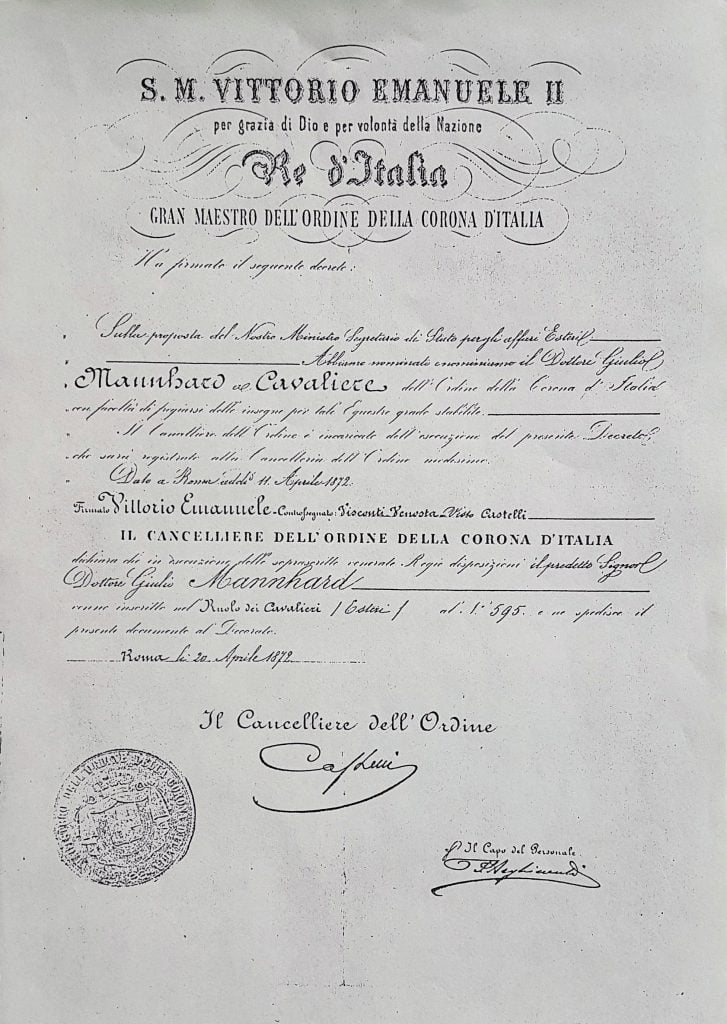 S. M. VITTORIO EMANUELE II
per grazia di Dio e per volontà della Nazione
Re d'Italia
GRAN MAESTRO DELL'ORDINE DELLA CORONA D'ITALIA
Ha firmato il seguente decreto:
Sulla proposta del Nostro Ministro Segretario di Stato per gli affari Esteri
Abbiamo nominato e nominiamo il Dottore Giulio
Mannhard a Cavaliere dell'Ordine della Corona d'Italia
con facoltà di fregiarsi delle insegne per tale Equestre grado stabilite.
Il Cancelliere dell'Ordine è incaricato dell'esecuzione del presente Decreto,
che sarà registrato alla Cancelleria dell'Ordine medesimo.
Dato a Roma addì 11 Aprile 1872.
Firmato Vittorio Emanuele - Controssegnato: Visconti-Venosta - Visto Castelli
IL CANCELLIERE DELL'ORDINE DELLA CORONA D'ITALIA
dichiara che in esecuzione delle soprascritte venerate Regie disposizioni il predetto Signor
Dottore Giulio Mannhard
venne inscritto nel Ruolo dei Cavalieri (Esteri) al 595 e ne spedisce il
presente documento al Decorato.
Roma li 20 Aprile 1872
Il Cancelliere dell'Ordine
Castelli
Il Capo del Personale
DELL'ORDINE DELLA CORONA D'ITALIA